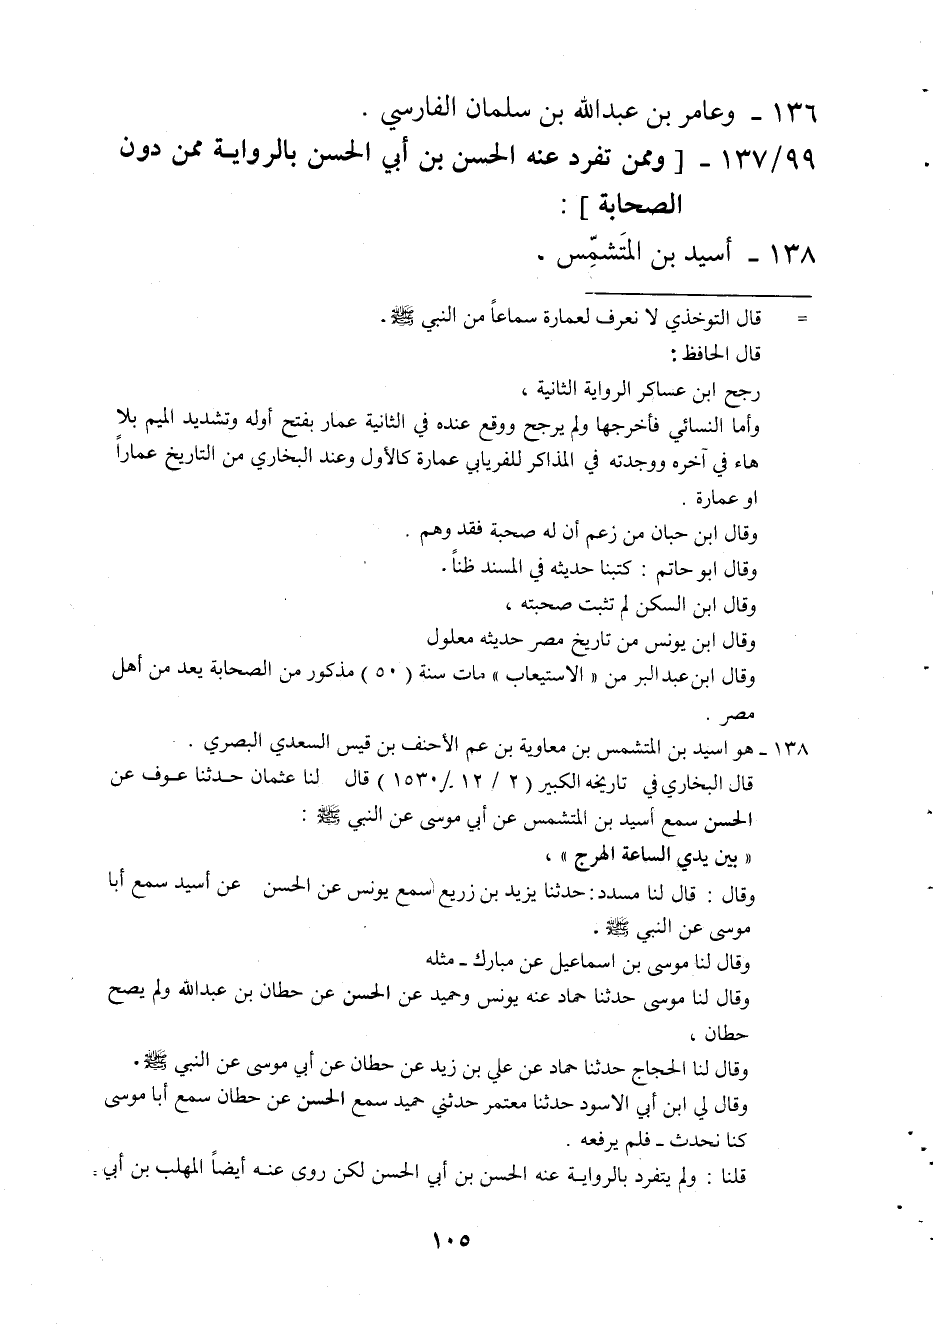 ١٣٦ ـ وعامر بن عبدالله بن سلمان الفارسي .
١٣٧/٩٩ ـ [ وممن تفرد عنه الحسن بن أبي الحسن بالرواية ممن دون
الصحابة ] :
١٣٨ ـ أسيد بن المتَشمِّس .
= قال التوخذي لا نعرف لعمارة سماعاً من النبي ﷺ .
قال الحافظ :
رجح ابن عساكر الرواية الثانية ،
وأما النسائي فأخرجها ولم يرجح ووقع عنده في الثانية عمار بفتح أوله وتشديد الميم بلا
هاء في آخره ووجدته في المذاكر للفريابي عمارة كالأول وعند البخاري من التاريخ عماراً
او عمارة .
وقال ابن حبان من زعم أن له صحبة فقد وهم .
وقال ابو حاتم : كتبنا حديثه في المسند ظناً .
وقال ابن السكن لم تثبت صحبته ،
وقال ابن يونس من تاريخ مصر حديثه معلول
وقال ابن عبد البر من « الاستيعاب » مات سنة ( ٥٠ ) مذكور من الصحابة يعد من أهل
مصر .
١٣٨ ـ هو اسيد بن المتشمس بن معاوية بن عم الأحنف بن قيس السعدي البصري .
قال البخاري في تاريخه الكبير ( ٢ / ١٢ ـ/ ١٥٣٠ ) قال لنا عثمان حدثنا عوف عن
الحسن سمع أسيد بن المتشمس عن أبي موسى عن النبي ﷺ :
« بين يدي الساعة الهرج » ،
وقال : قال لنا مسدد : حدثنا يزيد بن زريع سمع يونس عن الحسن عن أسيد سمع أبا
موسى عن النبي ﷺ .
وقال لنا موسى بن اسماعيل عن مبارك ـ مثله
وقال لنا موسى حدثنا حماد عنه يونس وحميد عن الحسن عن حطان بن عبدالله ولم يصح
حطان ،
وقال لنا الحجاج حدثنا حماد عن علي بن زيد عن حطان عن أبي موسى عن النبي ﷺ .
وقال لي ابن أبي الاسود حدثنا معتمر حدثني حميد سمع الحسن عن حطان سمع أبا موسى
كنا نحدث ـ فلم يرفعه .
قلنا : ولم يتفرد بالرواية عنه الحسن بن أبي الحسن لكن روى عنه أيضاً المهلب بن أبي =
١٠٥